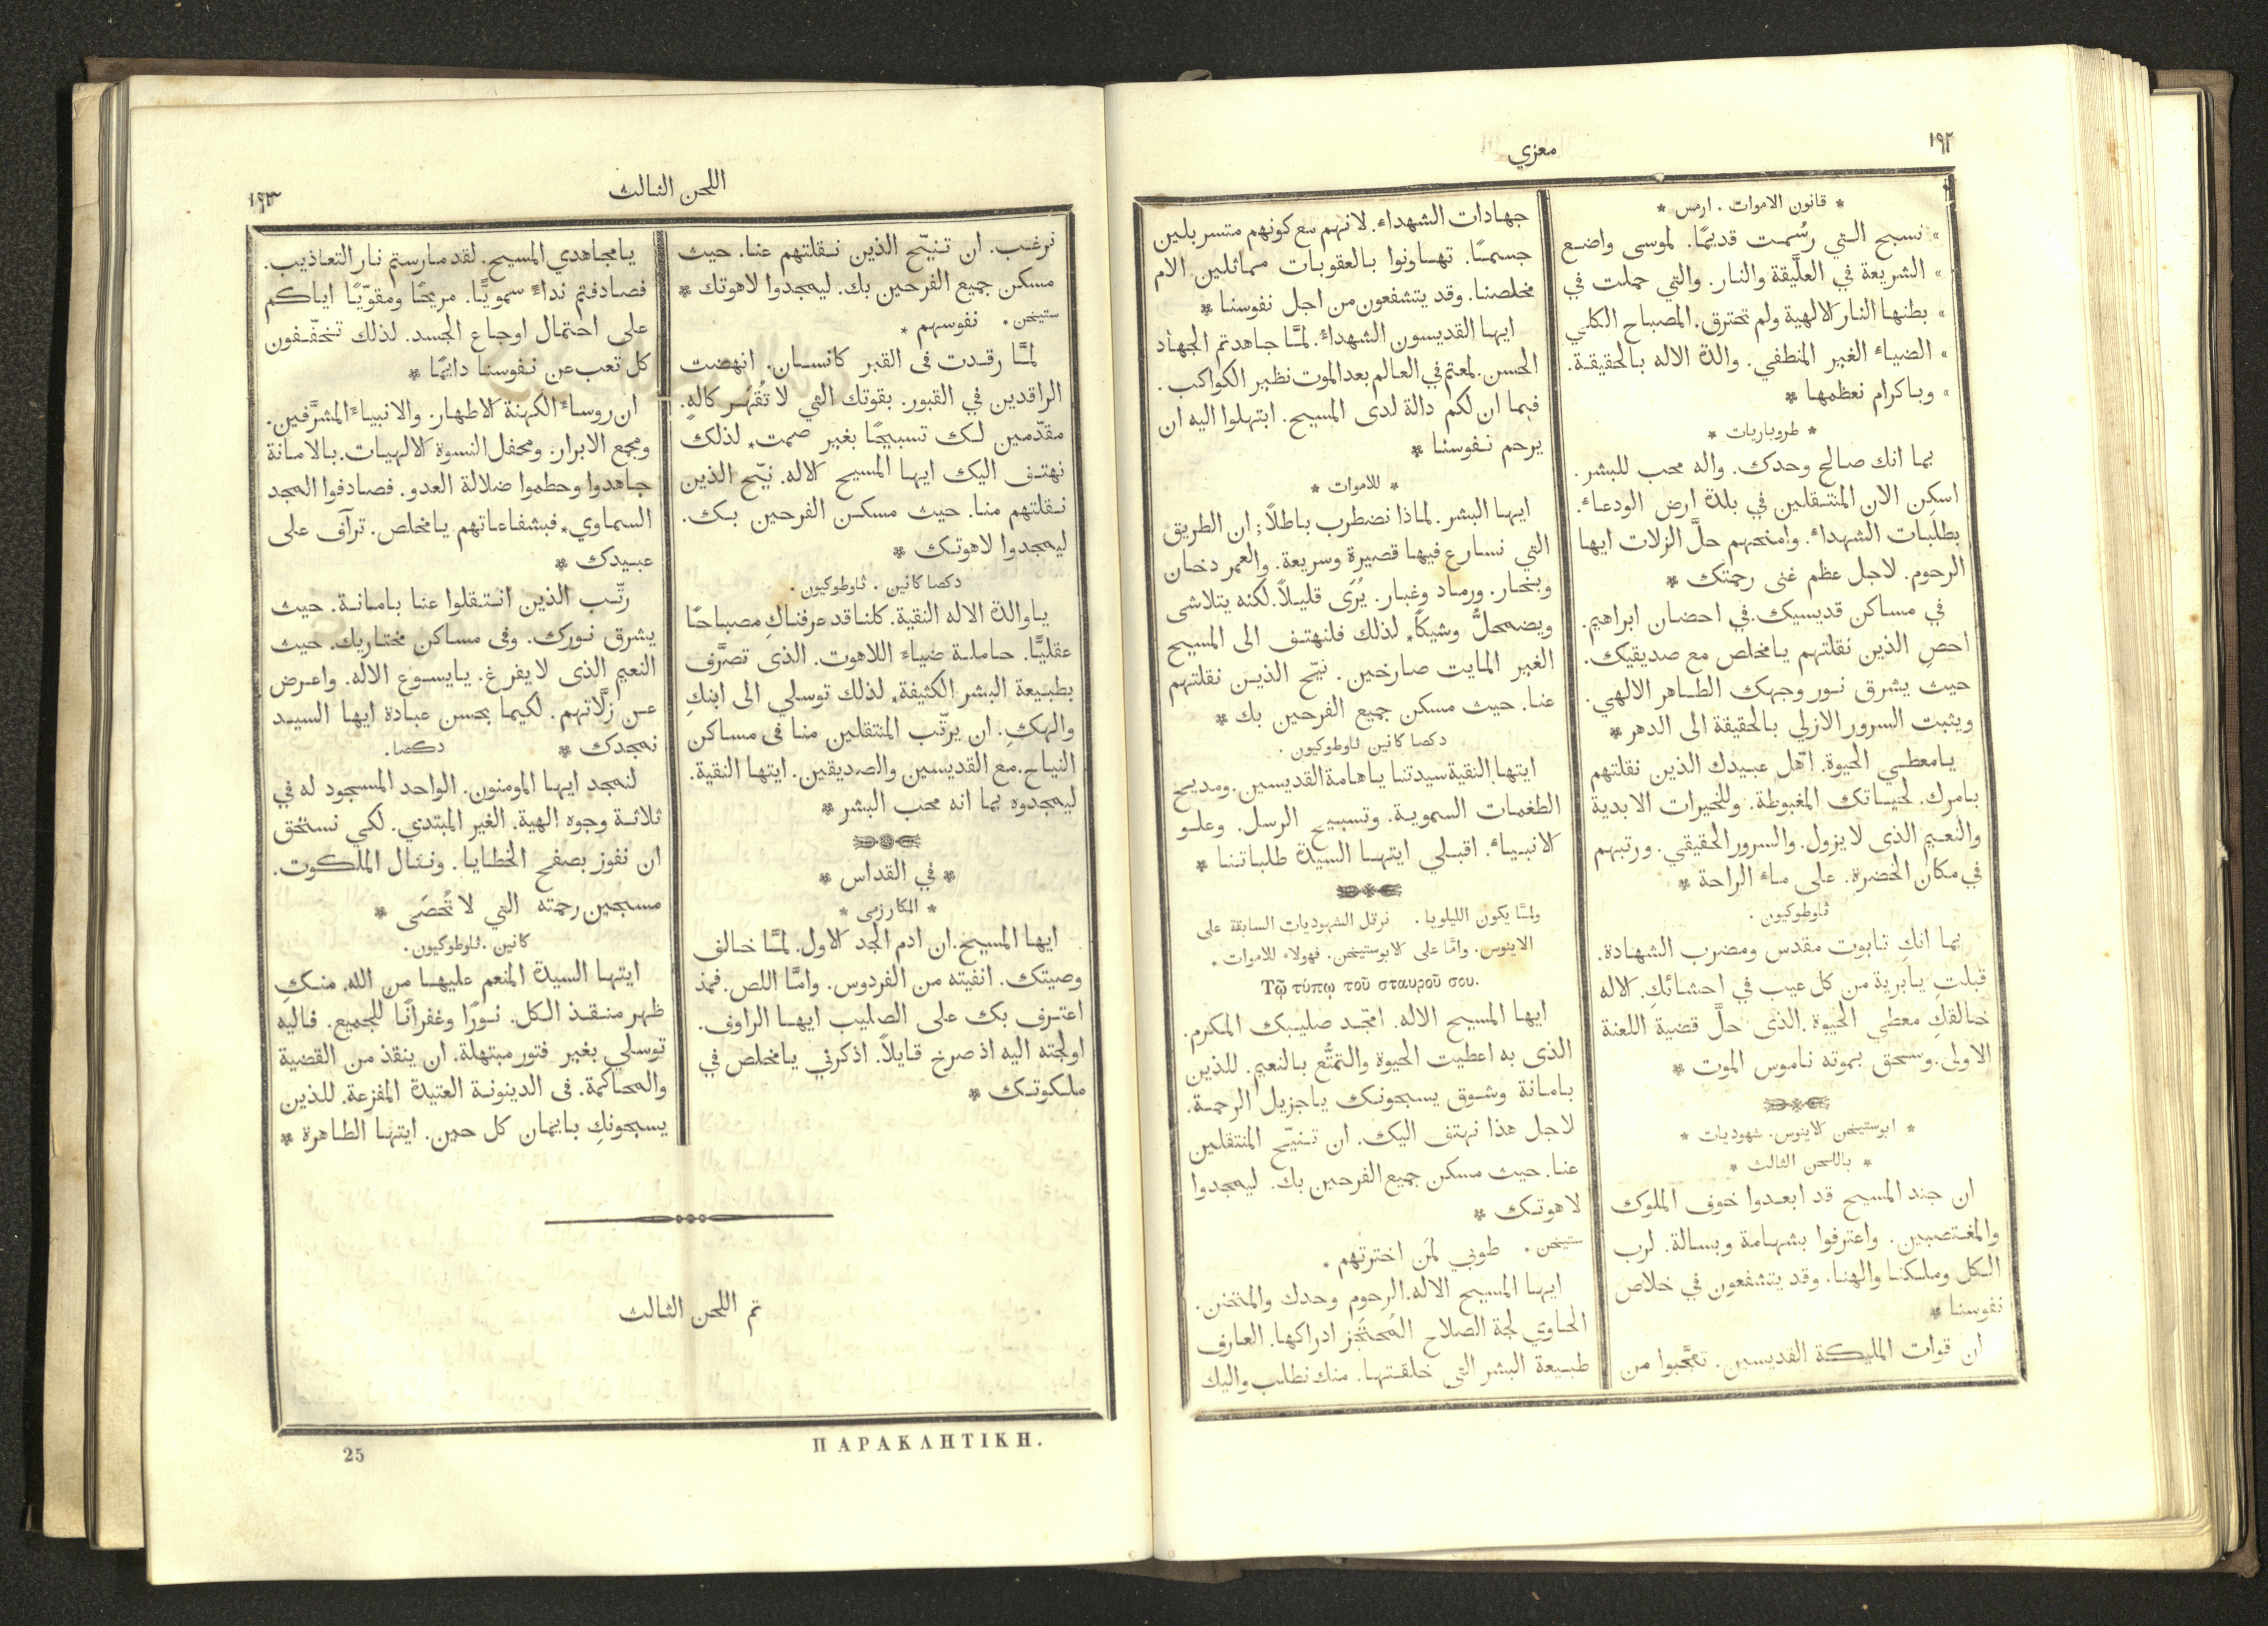 ١٩٢
معزي
* قانون الاموات . ارمس *
» نسبح الـتي رُسُمـت قديمًا. لموسى واضـع
» الشريعة في العلَّيقة والنـار. والتي حملت في
» بطنهـا النـار الالهية ولم تحترق. المصبـاح الكلي
» الضيـاء الغير المنطفي. والدة الالـه بـالحقيقـة.
» وبـاكرام نعظمهـا *
* طروباريات *
بما انك صـالح وحدك. واله محب للبشر.
اسكِن الان المنتـقلين في بلدة ارض الودعـاء.
بطلبـات الشهداء. وامنحهم حلَّ الزلات ايهـا
الرحوم. لاجل عظم غنى رحمتك *
في مسـاكن قديسيك. في احضـان ابراهيم.
احصِ الذين نقلتهم يـا مخلص مع صديقيك.
حيث يشرق نـور وجهك الطـاهر الالهي.
ويثبت السرور الازلي بـالحقيقة الى الدهر *
يـامعطـي الحيوة. اهّل عبـيدك الذين نقلتهم
بـامرك. لحيـاتك المغبوطة. وللخيرات الابدية
والنعـيم الذى لا يزول. والسرور الحقيقي. ورتبهم
في مكان الخضرة. على مـاء الراحة *
ثاوطوكيون .
بما انكِ تـابوت مقدس ومضرب الشهـادة.
قبلتِ يـابرية من كل عيب في احشـائكِ. الاله
خـالقكِ معطي الحيوة. الذى حلَّ قضية اللعنة
الاولى. وسحق بموته نـاموس الموت *
* ابوستيخن الاينوس. شهوديات *
* باللحن الثالث *
ان جند المسيح قد ابعـدوا خوف الملوك
والمغـتصبين. واعترفوا بشهـامة وبسـالة. لرب
الـكل وملـكنـا والهنـا. وقد يتشفعون في خلاص
نفوسنـا *
ان قوات الملـيكة القديسين. تعجَّبوا من
جهـادات الشهداء. لانهم مع كونهم متسربلين
جسمـًا. تهـاونوا بـالعقوبـات ممـاثلين الام
مخلصنـا. وقد يتشفعون من اجل نفوسنـا *
ايهـا القديسون الشهداء. لمَّـا جـاهدتم الجهـاد
الحسن. لمعتم في العـالم بعد الموت نظير الكواكب.
فبما ان لكم دالة لدى المسيح. ابتهلوا اليه ان
يرحم نـفوسنـا *
* للاموات *
ايهـا البشر. لمـاذا نضطرب بـاطلاً؛ ان الطريق
التي نسـارع فيهـا قصيرة وسريعة. والعمر دخـان
وبخـار. ورمـاد وغبـار. يُرَى قليـلاً. لكنه يتلاشى
ويضمحلُّ وشيكًا* لذلك فلنهتـف الى المسيح
الغير المـايت صـارخين. نيّح الذيـن نقلتهم
عنـا. حيث مسكن جميع الفرحين بك *
دكصا كانين ثاوطوكيون .
ايتهـا النقية سيدتنـا يـاهـامة القديسين. ومديح
الطغمـات السمويـة. وتسبـيح الرسل. وعلـو
الانبـيـاء. اقبـلي ايتهـا السيدة طلبـاتـنـا *
ولمَّـا يكون الليلويـا. نرتل الشهوديـات السـابقة على
الاينوس. وامَّـا على الابوستيخن. فهولاء للاموات *
Τῷ τύπῳ τοῦ σταυροῦ σου.
ايهـا المسيح الاله. امجّد صليـبك المكرم.
الذى به اعطيت الحيوة والتمتُّع بـالنعيم. للذين
بـامـانة وشـوق يسبحونـك يـاجزيل الرحمـة.
لاجل هذا نهتف اليك. ان تـنيّـح المنتقلين
عنـا. حيث مسكن جميع الفرحين بك. ليمجدوا
لاهوتـك *
ستيخن * طوبي لمَن اخترتهم *
ايهـا المسيح الاله. الرحوم وحدك والمتحنن.
الحـاوي لجة الصلاح المُحتَجز ادراكهـا. العـارف
طبـيعة البشر التى خلقـتهـا. منك نطلب واليك
اللحن الثـالث
١٩٣
نرغـب. ان تـنيّـح الذين نـقلتهم عنـا. حيث
مسكن جميع الفرحين بك. ليمجدوا لاهوتك *
ستيخن * نفوسهم *
لمـَّـا رقـدت فى القبر كـانسـان. انهضت
الراقدين في القبور. بقوتك التي لا تُقْهَـر كاله.
مقدّمين لـك تسبيحًـا بغير صمت* لذلك
نهتـف اليك ايهـا المسيح الاله. نيّح الذين
نـقلتهم منـا. حيث مسكـن الفرحين بـك.
ليمجدوا لاهوتـك *
دكصا كانين . ثاوطوكيون .
يـاوالدة الاله النقية. كلنـاقد عرفنـاكِ مصبـاحًـا
عقليًّـا. حـاملـة ضيـاء اللاهوت. الذى تصرَّف
بطبـيعة البشر الكثيفة* لذلك توسلي الى ابنكِ
والهكِ. ان يرتّب المنتقلين منـا فى مسـاكن
النيـاح. مع القديسين والصديقين. ايتهـا النقية.
ليمجدوه بما انه محب البشر *
* في القداس *
* المكارزمى *
ايهـا المسيح. ان ادم الجد الاول. لمَّـا خـالف
وصيتك. انفيته من الفردوس. وامَّـا اللص. فمذ
اعتـرف بك على الصليب ايهـا الراوف.
اولجته اليه اذ صرخ قـايلاً. اذكرني يـامخلص في
ملـكوتـك *
يـامجـاهدي المسيح. لقد مـارستم نـار التعـاذيب.
فصـادفتم نداءً سمويًّـا. مريحًـا ومقوّيًـا ايـاكم
على احتمـال اوجـاع الجسد. لذلك تخفّـفون
كل تعب عن نـفوسنـا دايمًـا *
ان روسـاء الكهنة الاطهـار. والانبيـاء المشرَّفين.
ومجمع الابرار. ومحفل النسوة الالهيـات. بـالامـانة
جـاهدوا وحطموا ضلالة العدو. فصـادفوا المجد
السمـاوي* فبشفـاعـاتهم يـامخلص. ترآف على
عبـيدك *
رتّـب الذين انـتـقلوا عنـا بـامـانـة. حيث
يشرق نـورك. وفى مسـاكن مختـاريك. حيث
النعيم الذى لا يفرغ. يـايسـوع الاله. واعـرض
عـن زلَّاتهم. لكيما بحسن عبـادة ايهـا السيـد
نمجدك * دكصا.
لنمجد ايهـا المومنون. الواحد المسجود له في
ثلاثـة وجوه الهية. الغير المبتدي. لكي نستحق
ان نفوز بصفح الخطـايـا. ونـنـال الملـكوت.
مسبحين رحمته التي لا تُحصَى *
كانين . ثاوطوكيون .
ايتهـا السيدة المنعم عليهـا من الله. منـكِ
ظهر منـقـذ الـكل. نـورًا وغفرانًـا للجميع. فـاليه
توسلي بغير فتور مبتهلة. ان ينقذ من القضية
والمحـاكمة. فى الدينونـة العتيدة المفزعة. للذين
يسبحونكِ بـايمـان كل حين. ايتهـا الطـاهرة *
تم اللحن الثـالث
ΠΑΡΑΚΛΗΤΙΚΗ.
25